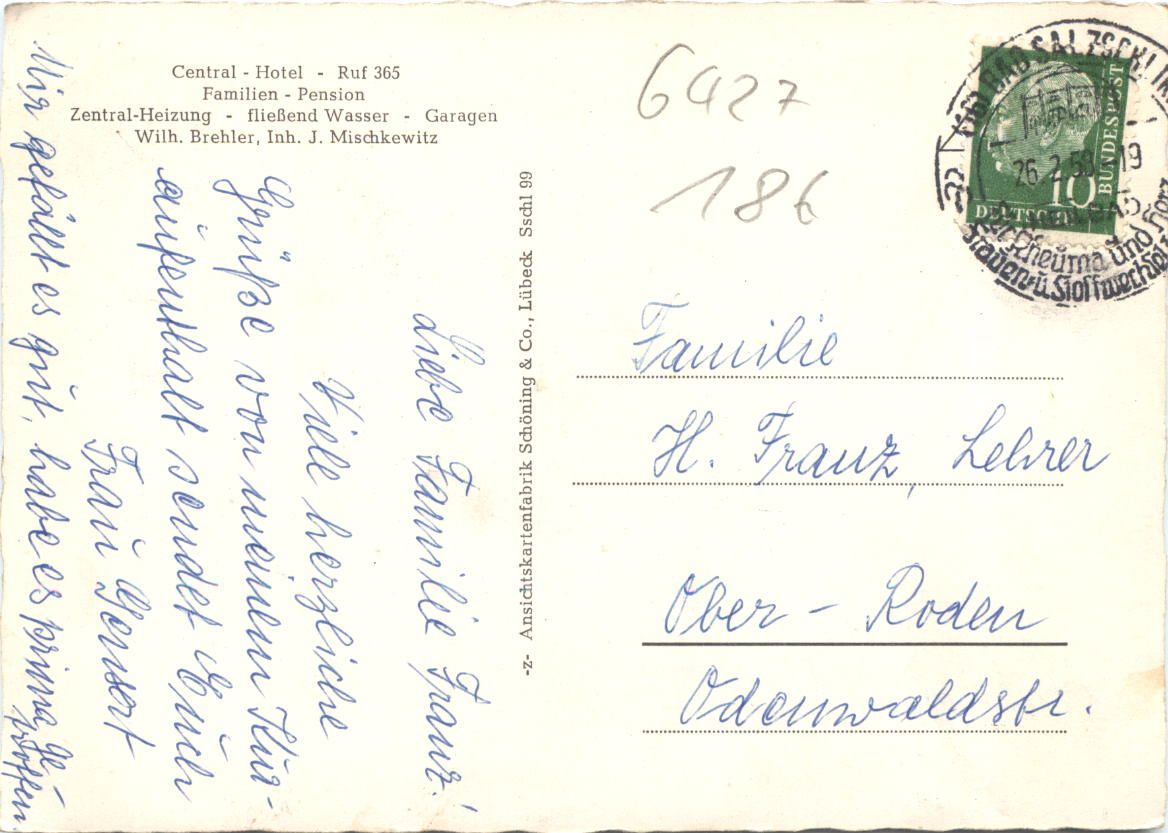 Central - Hotel - Ruf 365
Familien - Pension
Zentral-Heizung - fließend Wasser - Garagen
Wilh. Brehler, Inh. J. Mischkewitz
Liebe Familie Franz!
Viele herzliche
Grüße von meinem Kur-
aufenthalt sendet Euch
Frau
Mir gefällt es gut, habe es prima ge-
troffen.
-z- Ansichtskartenfabrik Schöning & Co., Lübeck Sschl 99
6427
186
BAD SALZSCHLI
26.2.58.-19
Rheuma und Herz
Frauen-u. Stoffwechsel
10
DEUTSCHE
BUNDESPOST
Familie
H. Franz, Lehrer
Ober - Roden
Odenwaldstr.